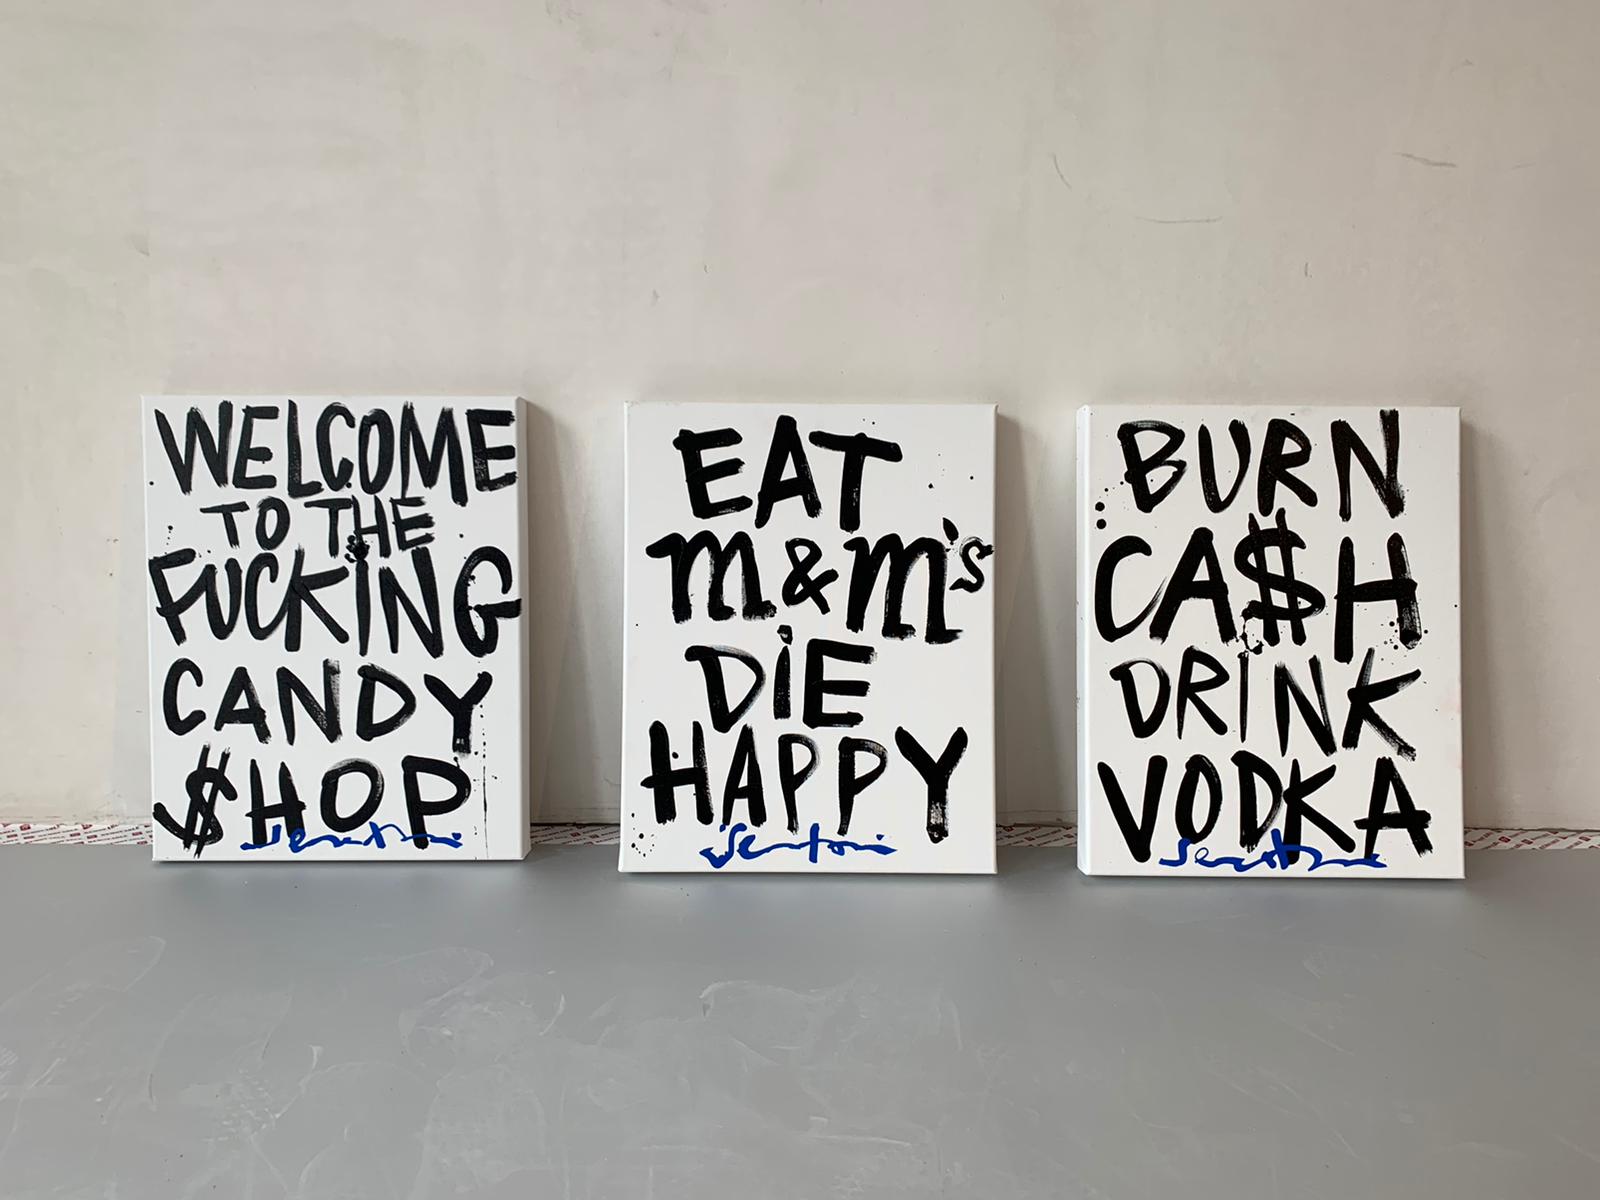 WELCOME
TO THE
FUCKiNG
CANDY
$HOP
EAT
m&m's
DiE
HAPPY
BURN
CA$H
DRINK
VODKA